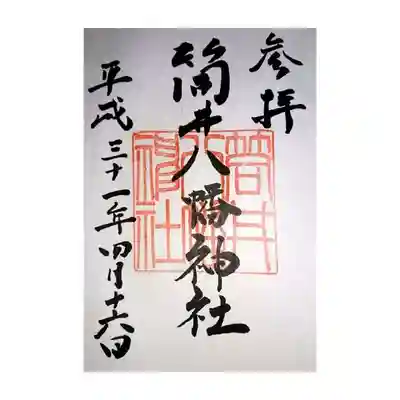 参拝
筒井八幡神社
平成三十一年四月十六日